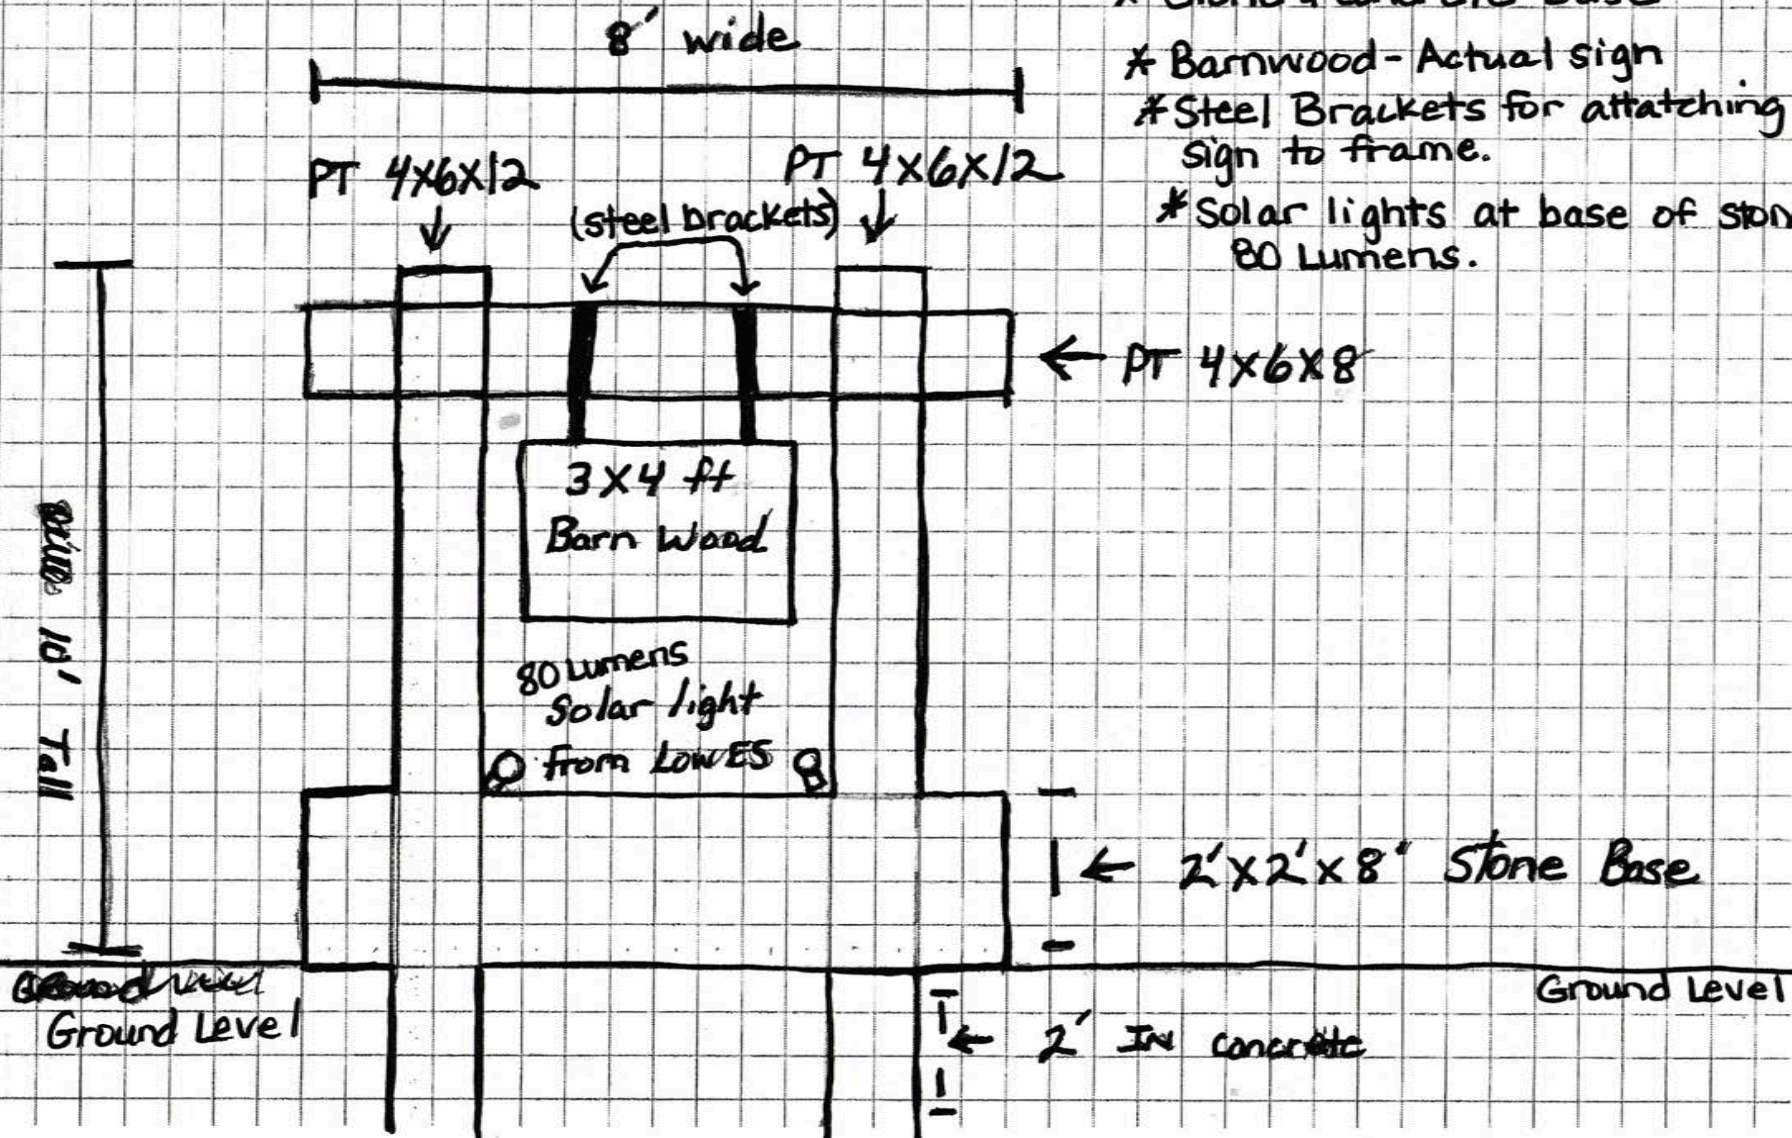 8' wide
* Barnwood - Actual sign
* Steel Brackets for attatching
sign to frame.
* Solar lights at base of ston
80 Lumens.
PT 4x6x12
PT 4x6x12
(steel brackets)
← PT 4x6x8
3 x 4 ft
Barn Wood
10' Tall
80 Lumens
Solar light
from LOWES
← 2'x2'x8' Stone Base
Ground Level
Ground Level
← 2' IN concrete